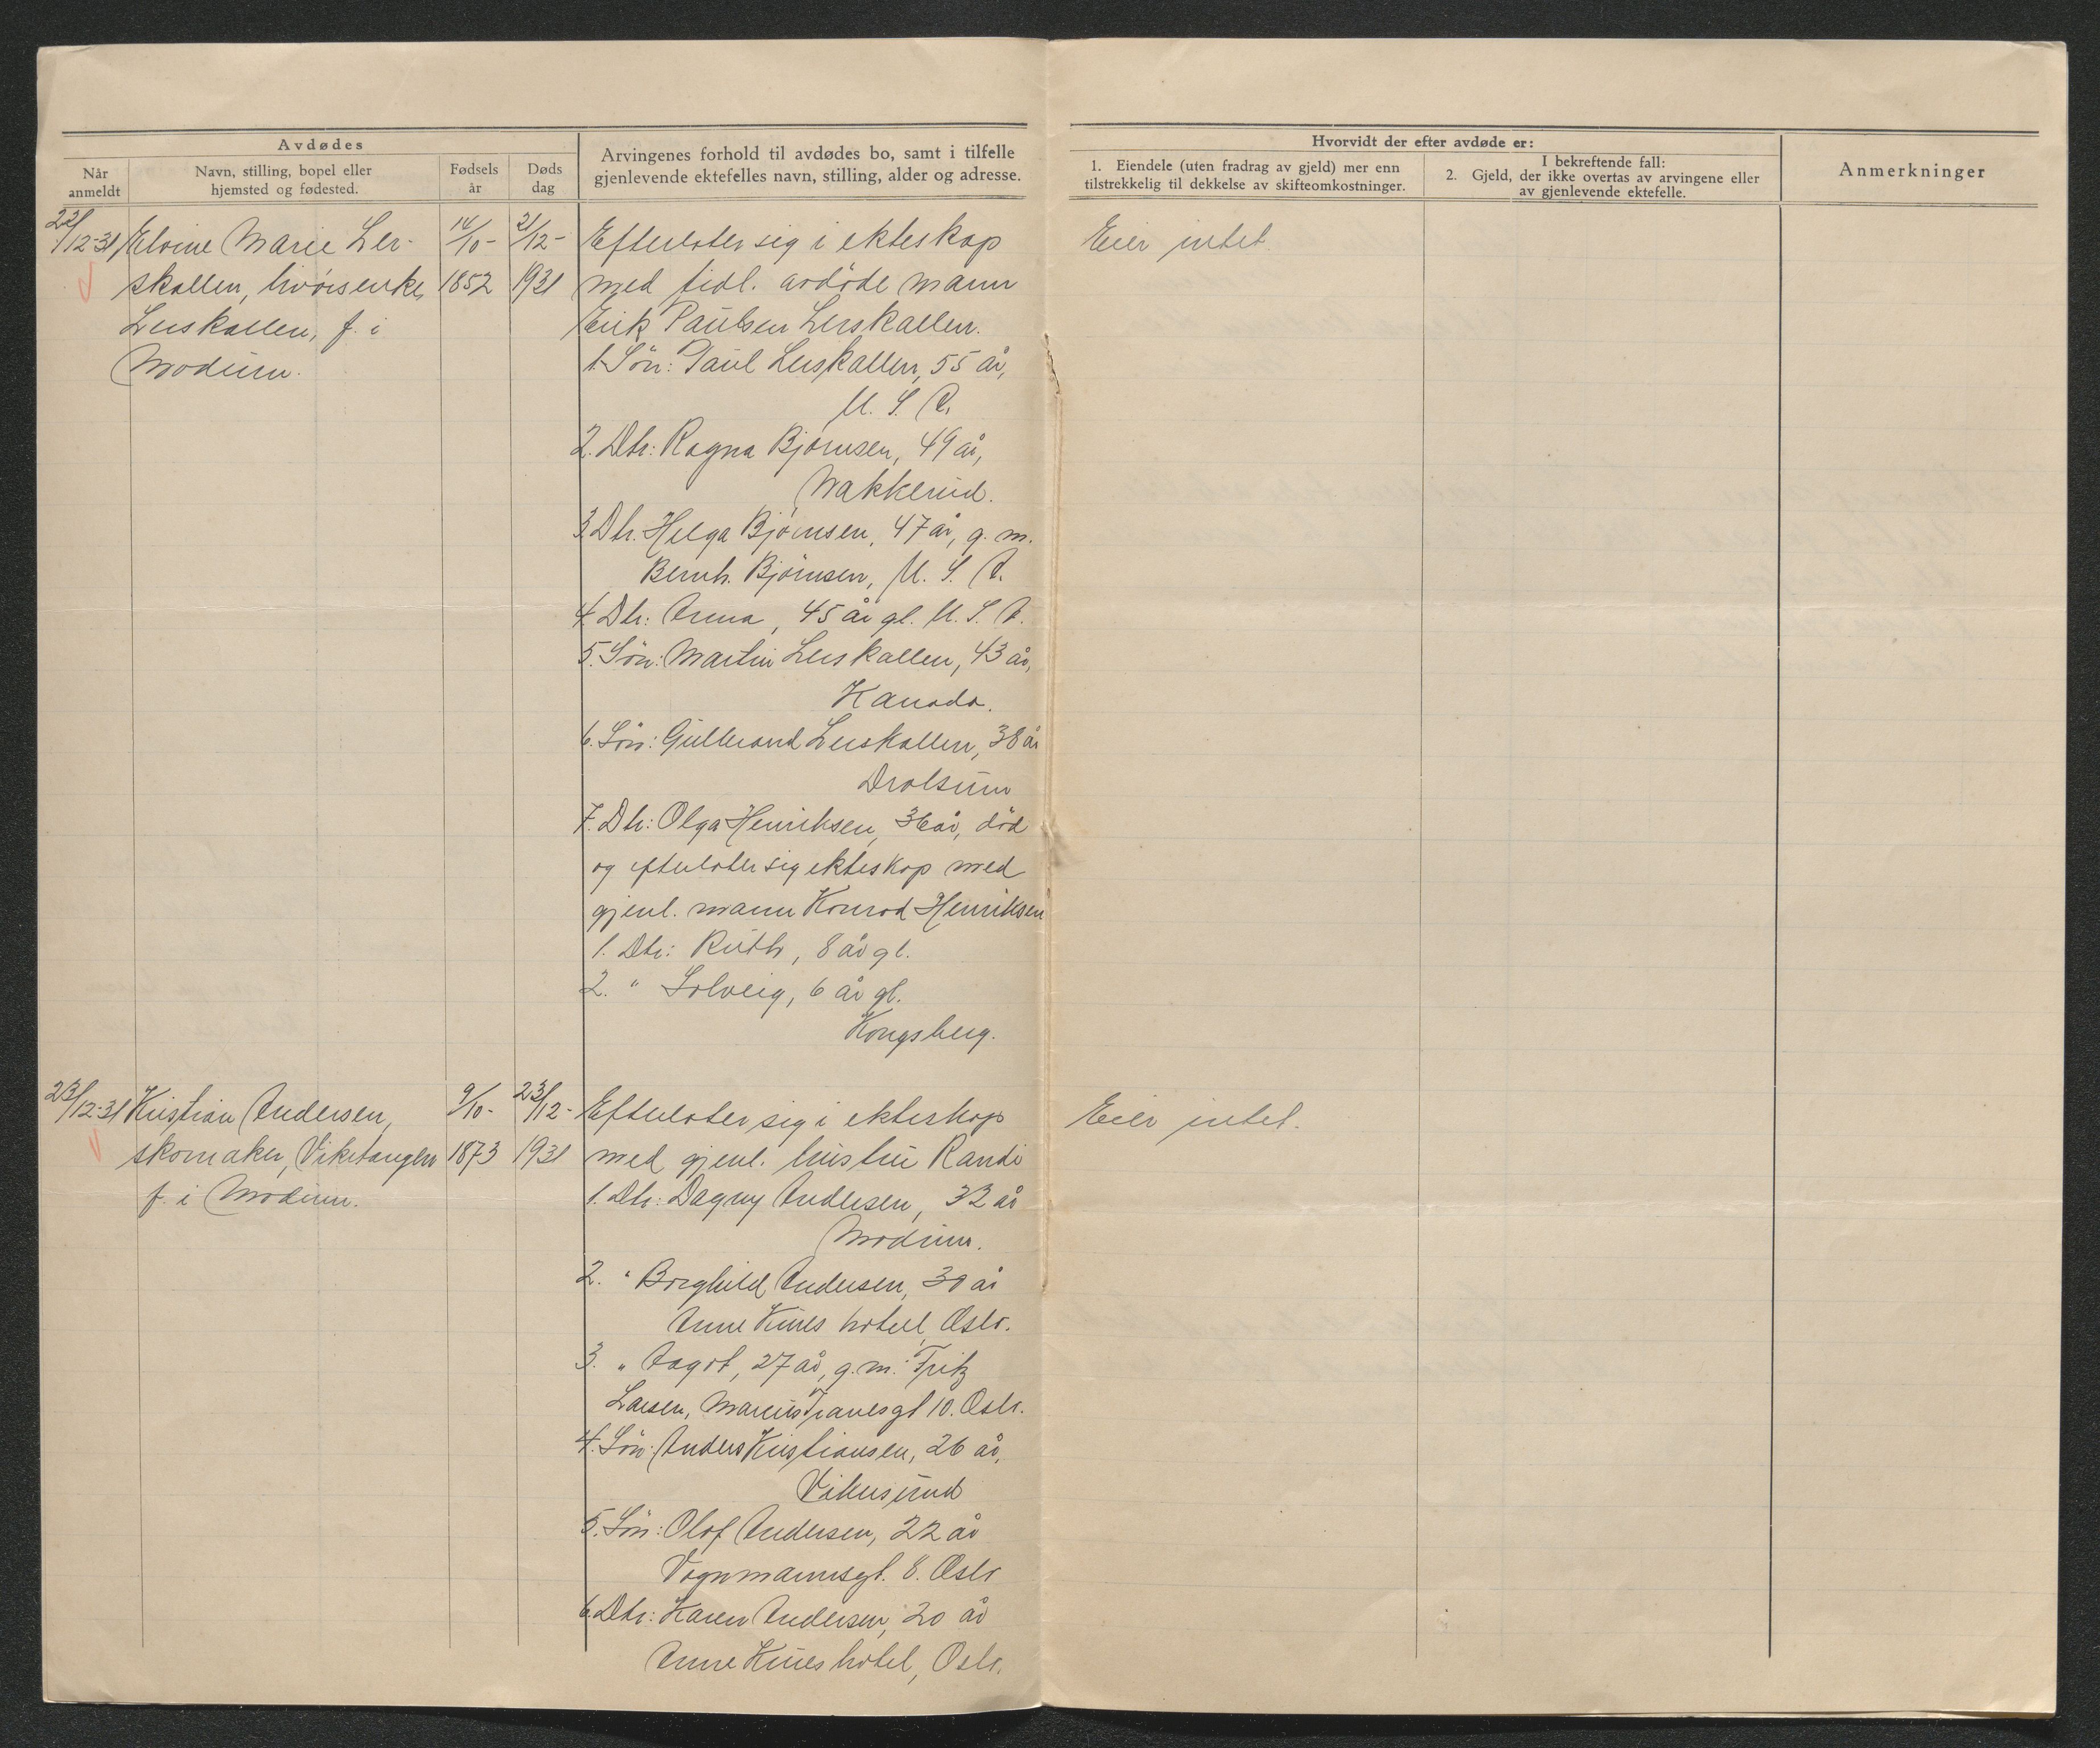 Avdødes
Når anmeldt
Navn, stilling, bopel eller hjemsted og fødested.
Fødsels år
Døds dag
Arvingenes forhold til avdødes bo, samt i tilfelle
gjenlevende ektefelles navn, stilling, alder og adresse.
Hvorvidt der efter avdøde er:
1. Eiendele (uten fradrag av gjeld) mer enn
tilstrekkelig til dekkelse av skifteomkostninger.
I bekreftende fall:
2. Gjeld, der ikke overtas av arvingene eller
av gjenlevende ektefelle.
Anmerkninger
22/12-31 Elvine Marie Ler-
skallen, livørsenke,
Lerskallen, f. i
Modum.
14/10-
1852
21/12-
1931
Efterlater sig i ekteskap
med tidl. avdöde mann
Erik Paulsen Lerskallen.
1. Sön: Paul Lerskallen, 55 år,
U. S. A.
2. Dtr: Ragna Bjørnsen, 49 år,
Nakkerud.
3. Dtr. Helga Bjørnsen, 47 år, g. m.
Bernh. Bjørnsen, U. S. A.
4. Dtr: Anna, 45 år gl. U. S. A.
5. Sön: Martin Lerskallen, 43 år,
Kanada.
6. Sön: Gulbrand Lerskallen, 38 år
Drolsum
7. Dtr: Olga Henriksen, 36 år, död
og efterlater sig ekteskap med
gjenl. mann Konrad Henriksen
1. Dtr: Ruth, 8 år gl.
2. " Solveig, 6 år gl.
Kongsberg.
Eier intet.
23/12-31 Kristian Andersen,
skomaker, Viketangen
f. i Modum.
9/10-
1873
23/12-
1931
Efterlater sig i ekteskap
med gjenl. hustru Randi
1. Dtr: Dagny Andersen, 32 år
Modum.
2. " Borghild Andersen, 30 år
Anne Kures hotell, Oslo.
3. " Aagot, 27 år, g. m. Fritz
Larsen, Marcus Tranesgt 10. Oslo.
4. Sön: Anders Kristiansen, 26 år,
Vikersund
5. Sön: Olaf Andersen, 22 år
Vognmannsgt. 8. Oslo
6. Dtr: Karen Andersen, 20 år
Anne Kures hotel, Oslo.
Eier intet.